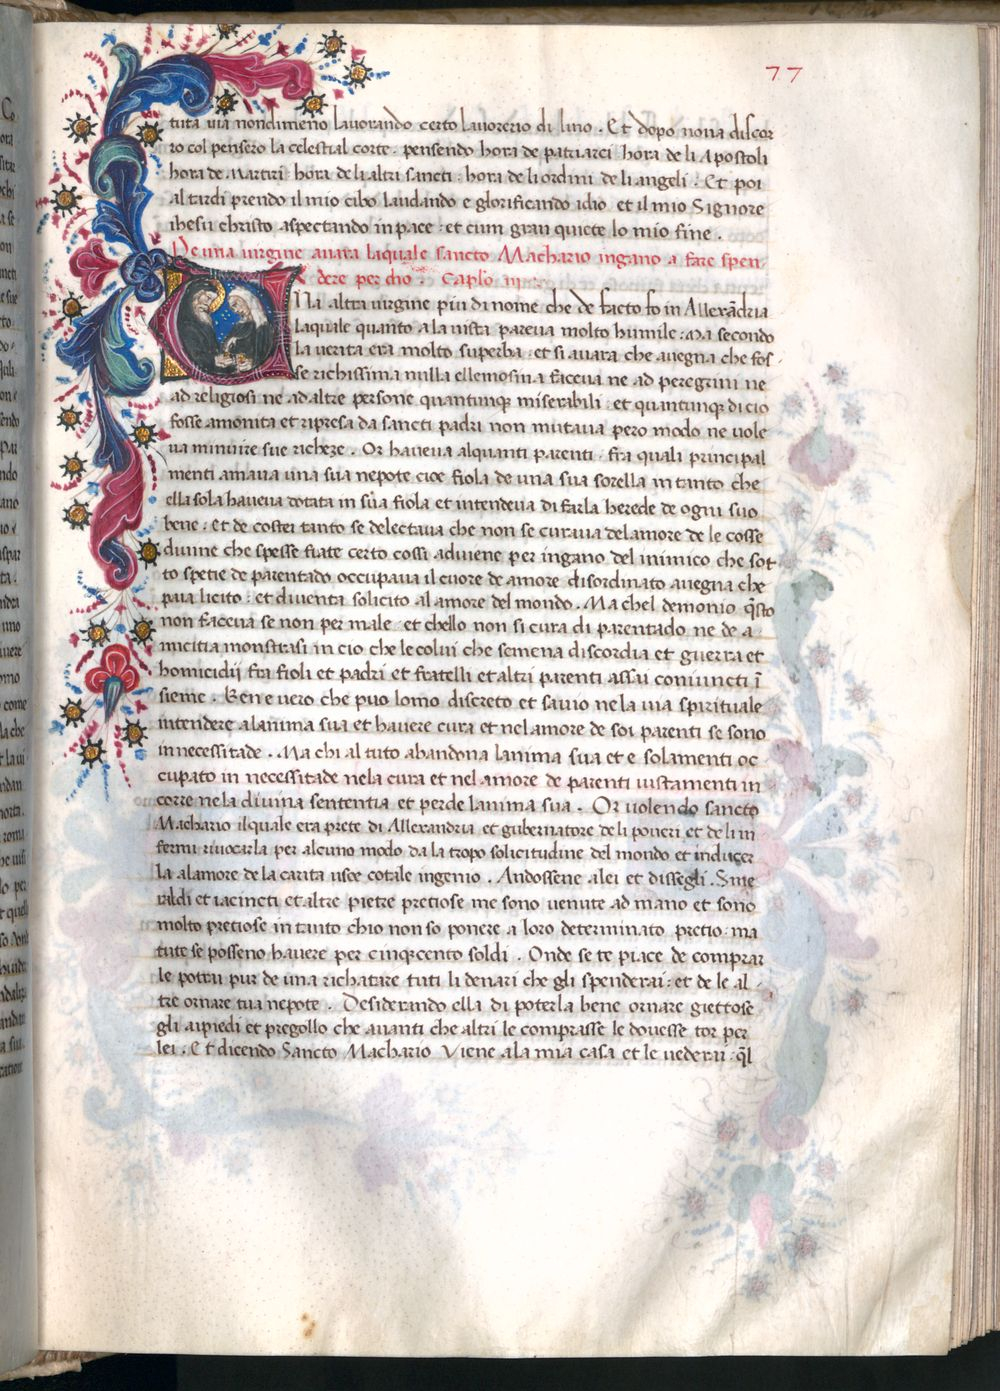 77
tuta uia nondimeno lauorando certo lauorerio di lino . Et dopo nona discor
ro col pensero la celestial corte . pensendo hora de patriarci hora de li Apostoli
hora de Martiri : hora de li altri sancti : hora de li ordini de li angeli . Et poi
al tardi prendo il mio cibo laudando e glorificando idio et il mio Signore
ihesu christo aspectando in pace : et cum gran quiete lo mio fine .
De una uirgine auara laquale sancto Machario ingano a fare spen-
dere per dio . Caplo
Na altra uirgine piu di nome che de facto fo in Allexãdria
laquale quanto a la uista pareua molto humile : Ma secondo
la uerita era molto superba : et si auara che auegna che fos-
se richissima nulla ellemosina faceua ne ad peregrini ne
ad religiosi ne ad altre persone quantunq; miserabili : et quantunq; di cio
fosse amonita et ripresa da sancti padri non mutaua pero modo ne uole
ua minuire sue richeze . Or haueua alquanti parenti : fra quali principal
menti amaua una sua nepote cioe fiola de una sua sorella in tanto che
ella sola haueua dotata in sũa fiola et intendeua di farla herede de ogni suo
bene : et de costei tanto se delectaua che non se curaua del amore de le cosse
diuine che spesse fiate certo cossi aduiene per ingano del inimico che sot
to spetie de parentado occupaua il cuore de amore disordinato auegna che
paia licito : et diuenta solicito al amore del mondo . Ma chel demonio q̃sto
non faceua se non per male : et chello non si cura di parentado ne de a-
micitia monstrasi in cio che le colui che semena discordia et guerra et
homicidij fra fioli et padri et fratelli et altri parenti assai coniuncti ĩ
sieme . Ben e uero che puo lomo discreto et sauio ne la uia spirituale
intendere a lanima sua et hauere cura et nel amore de soi parenti se sono
in necessitade . Ma chi al tuto abandona lanima sua et e solamenti oc
cupato in necessitade nela cura et nel amore de parenti iustamenti in
corre nela diuina sententia et perde lanima sua . Or uolendo sancto
Machario ilquale era prete di Allexandria et gubernatore de li poueri et de li in
fermi riuocarla per alcuno modo da la tropo solicitudine del mondo et inducer
la alamore de la carita usoe cotale ingenio . Andossene a lei et dissegli . Sme
raldi et iacincti et altre pietre pretiose me sono uenute ad mano et sono
molto pretiose in tanto chio non so ponere a loro determinato pretio : ma
tute se posseno hauere per cinq; cento soldi . Onde se te piace de comprar
le potrai pur de una richatare tuti li denari che gli spenderai : et de le al-
tre ornare tua nepote . Desiderando ella di poterla bene ornare giettose
gli aipiedi et pregollo che auanti che altri le comprasse le douesse tor per
lei . Et dicendo Sancto Machario Viene ala mia casa et le uederai : q̃l